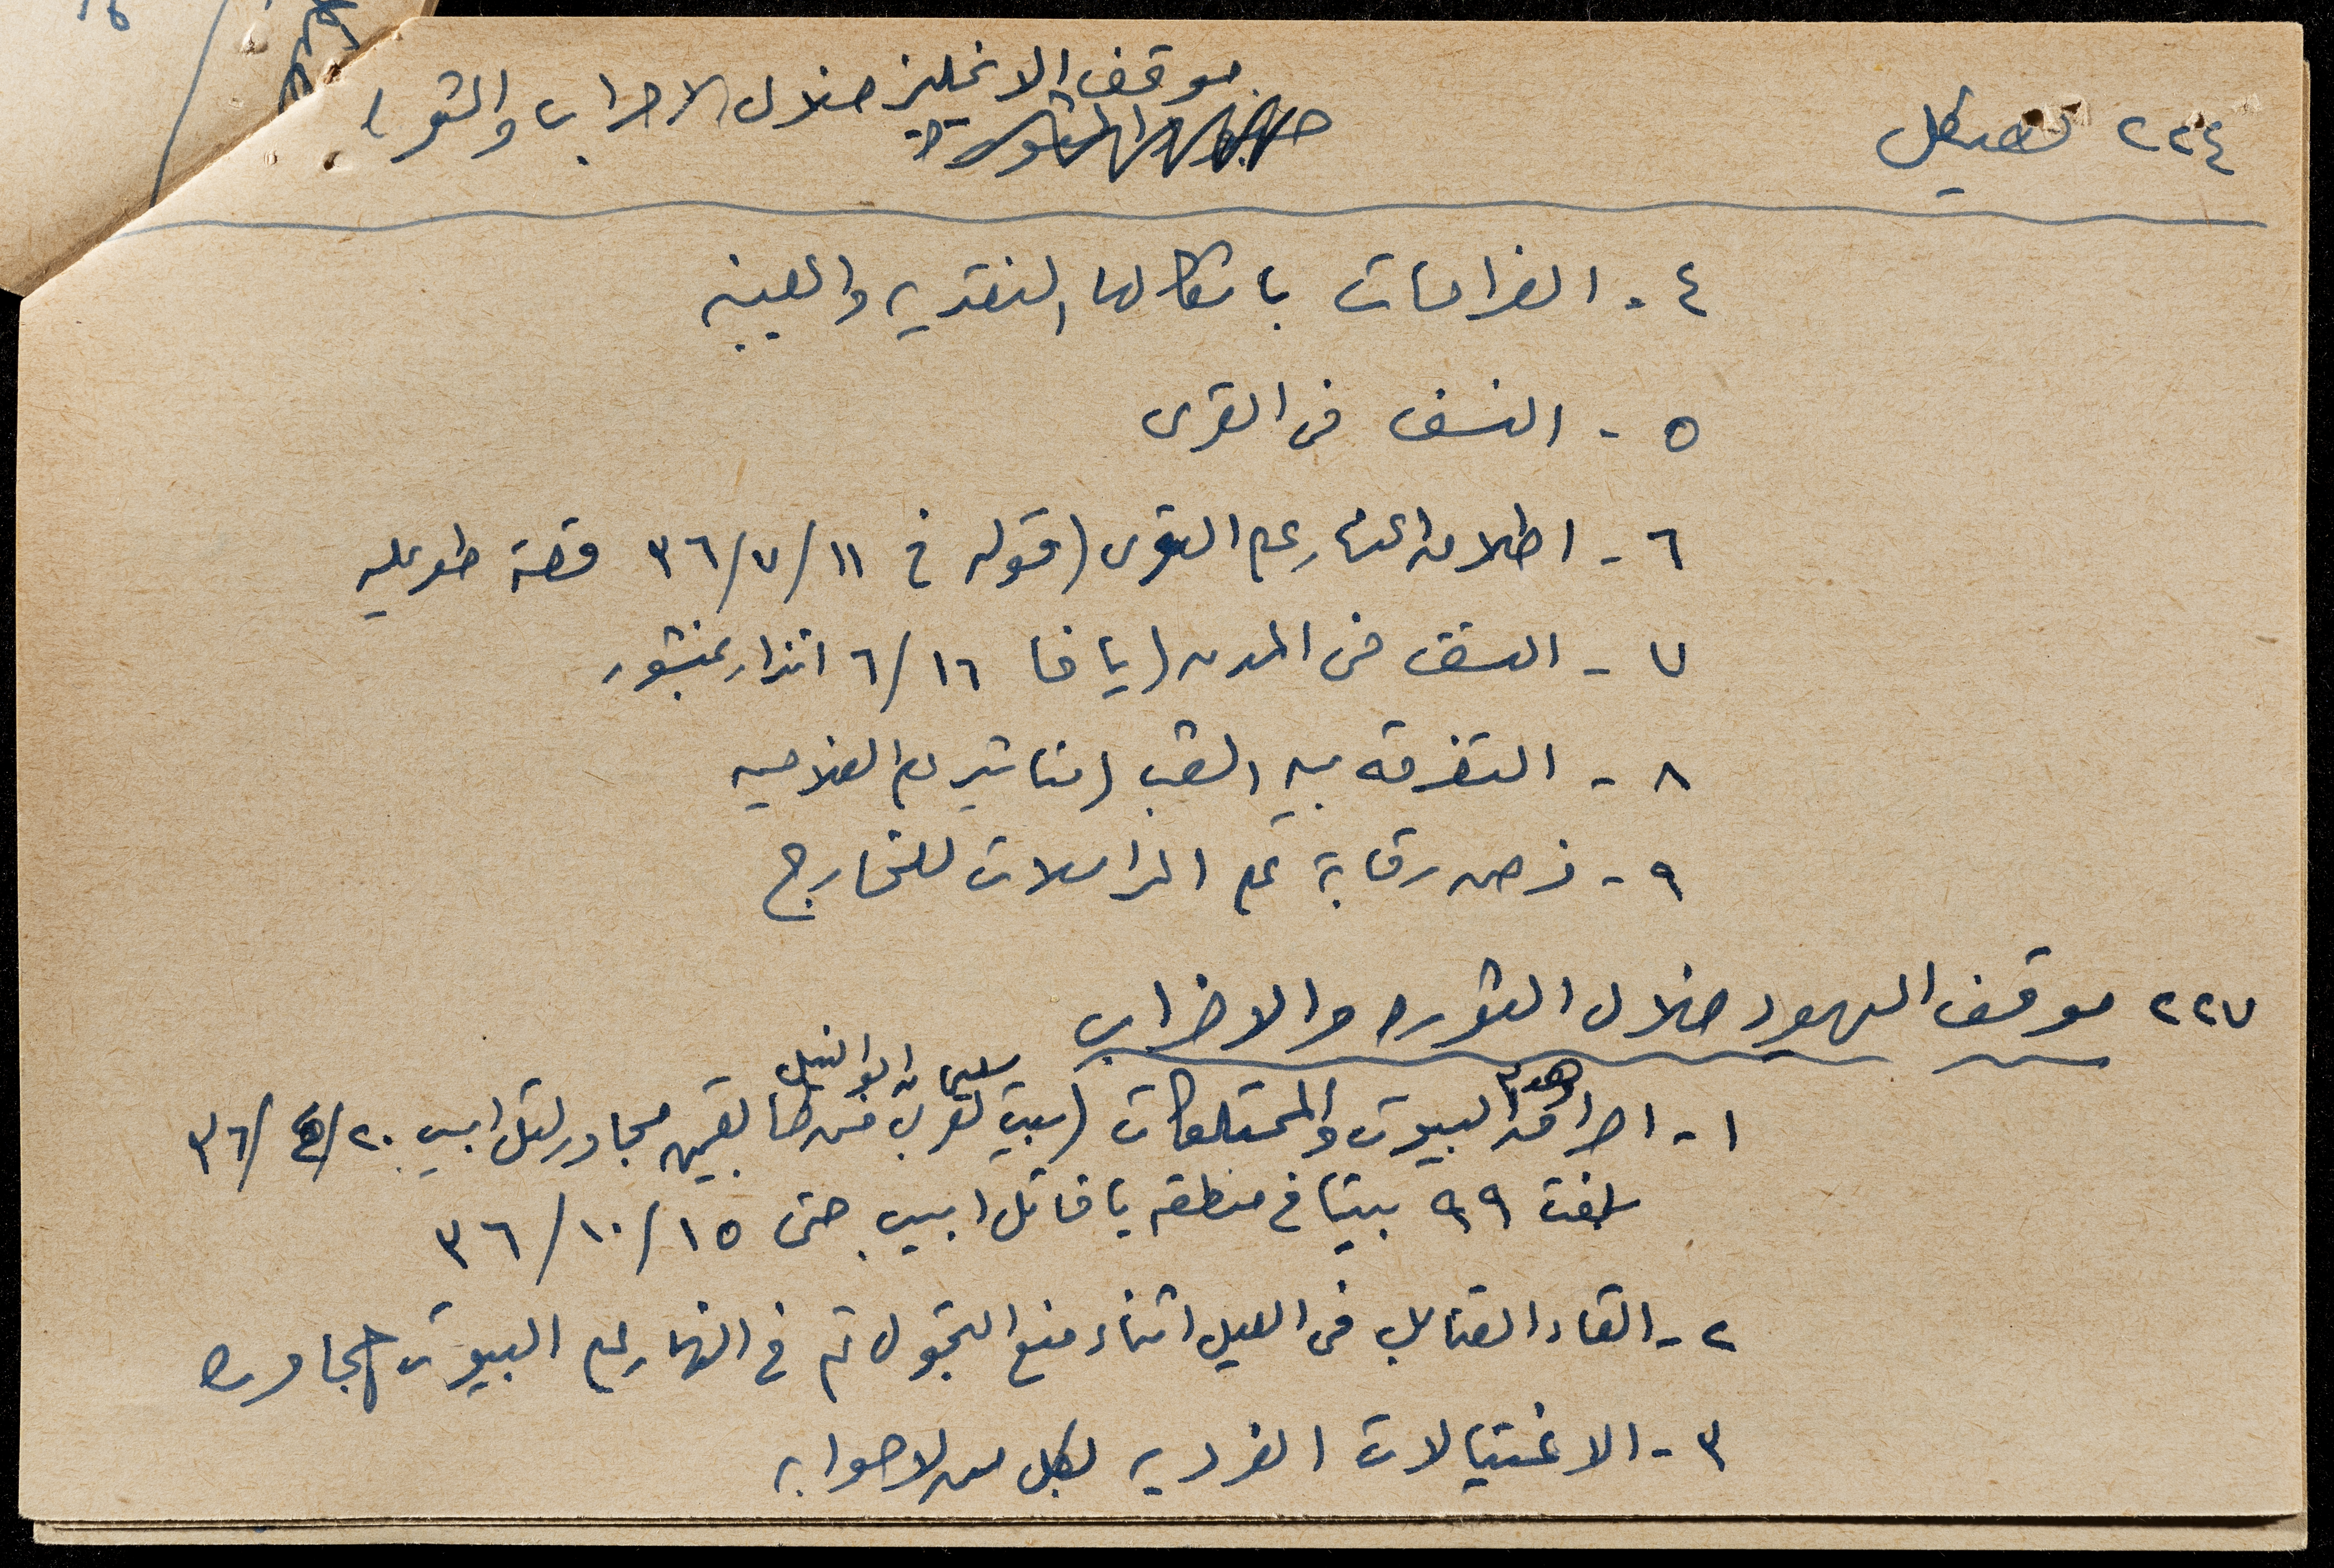 ٢٢٤ هيكل
موقف الانجليز خلال الاضراب والثورة
٤ - الغرامات باشكالها النقديه والعينيه
٥ - النسف في القرى
٦ - اطلاق النار على القرى (قوله في ١١/٧/٣٦ قصة طويله
٧ - النسف في المدن (يافا ١٦/٦ انذار بمنشور
٨ - التفرقه بين الشعب (مناشير الى الفلاحين
٩ - فرض رقابة على المراسلات للخارج
٢٢٧ موقف اليهود خلال الثوره والاضراب
١ - احراق وهدم البيوت والممتلكات (بيت سليمان ابو النيل مجاور لتل ابيب ٢٠/٤/٣٦
بلغت ٩٩ بيتا في منطقه يافا تل ابيب حتى ١٥/١٠/٣٦
٢ - القاء القنابل في الليل اثناء منع التجول ثم في النهار على البيوت المجاوره
٣ - الاغتيالات الفرديه لكل من لاحوا به